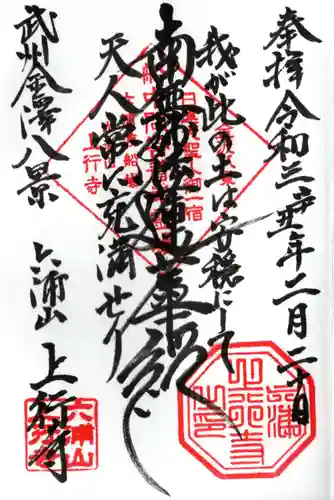 奉拝 令和三辛丑年二月二十日
我が此の土は安穏にして
南無妙法蓮華経
天人常に充満せり
武州金澤八景
六浦山 上行寺
日蓮聖人御一宿
上行寺
六浦山
上行寺